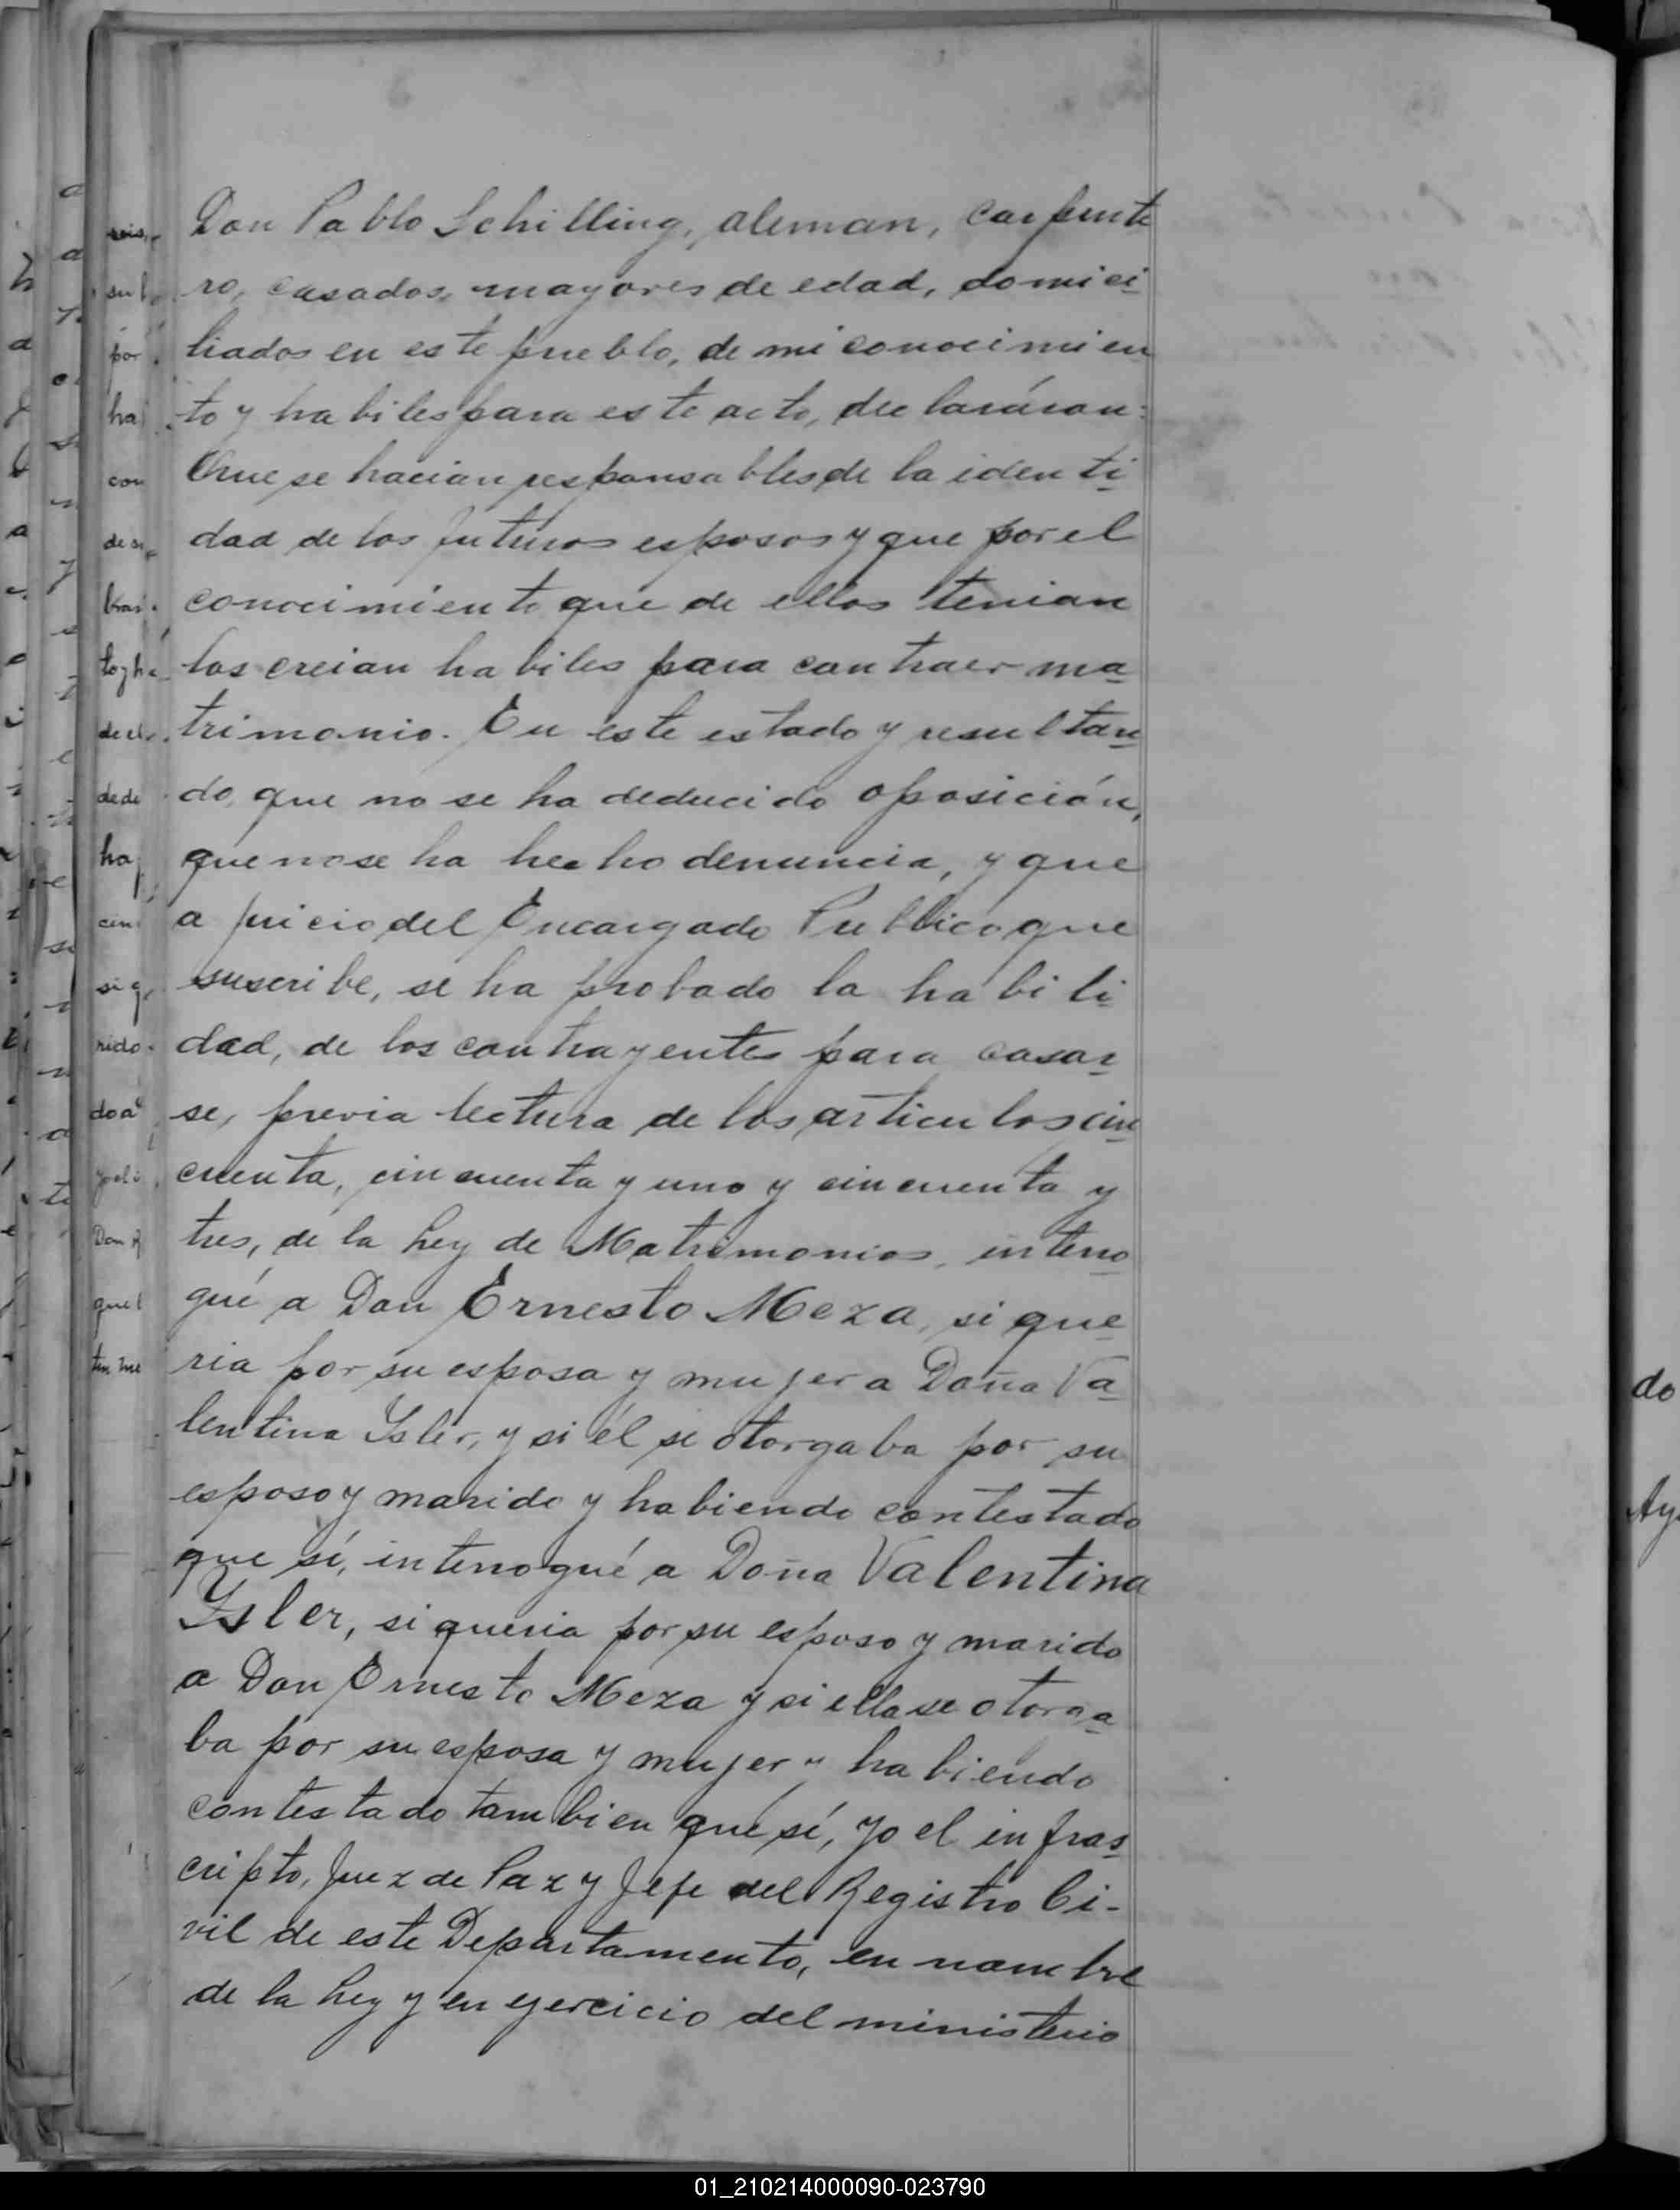 Don Pablo Schilling, aleman, carpinte
ro, casados, mayores de edad, domici
liados en este pueblo, de mi conocimien
to y habiles para este acto, declaráron:
Que se hacian responsables de la identi
dad de los futuros esposos y que por el
conocimiento que de ellos tenian
los creian habiles para contraer ma
trimonio. En este estado y resultan
do que no se ha deducido oposición,
que no se ha hecho denuncia, y que
a juicio del Encargado Publico que
suscribe, se ha probado la habili
dad, de los contrayentes para casar
se, previa lectura de los articulos cin
cuenta, cincuenta y uno y cincuenta y
tres, de la Ley de Matrimonios, interro
gué a Don Ernesto Meza, si que
ria por su esposa y mujer a Doña Va
lentina Ysler, y si él se otorgaba por su
esposo y marido y habiendo contestado
que sí, interrogué a Doña Valentina
Ysler, si queria por su esposo y marido
a Don Ernesto Meza y si ella se otorga
ba por su esposa y mujer y habiendo
contestado tambien que sí, yo el infras
cripto, Juez de Paz y Jefe del Registro Ci-
vil de este Departamento, en nombre
de la Ley y en ejercicio del ministerio
01_210214000090-023790